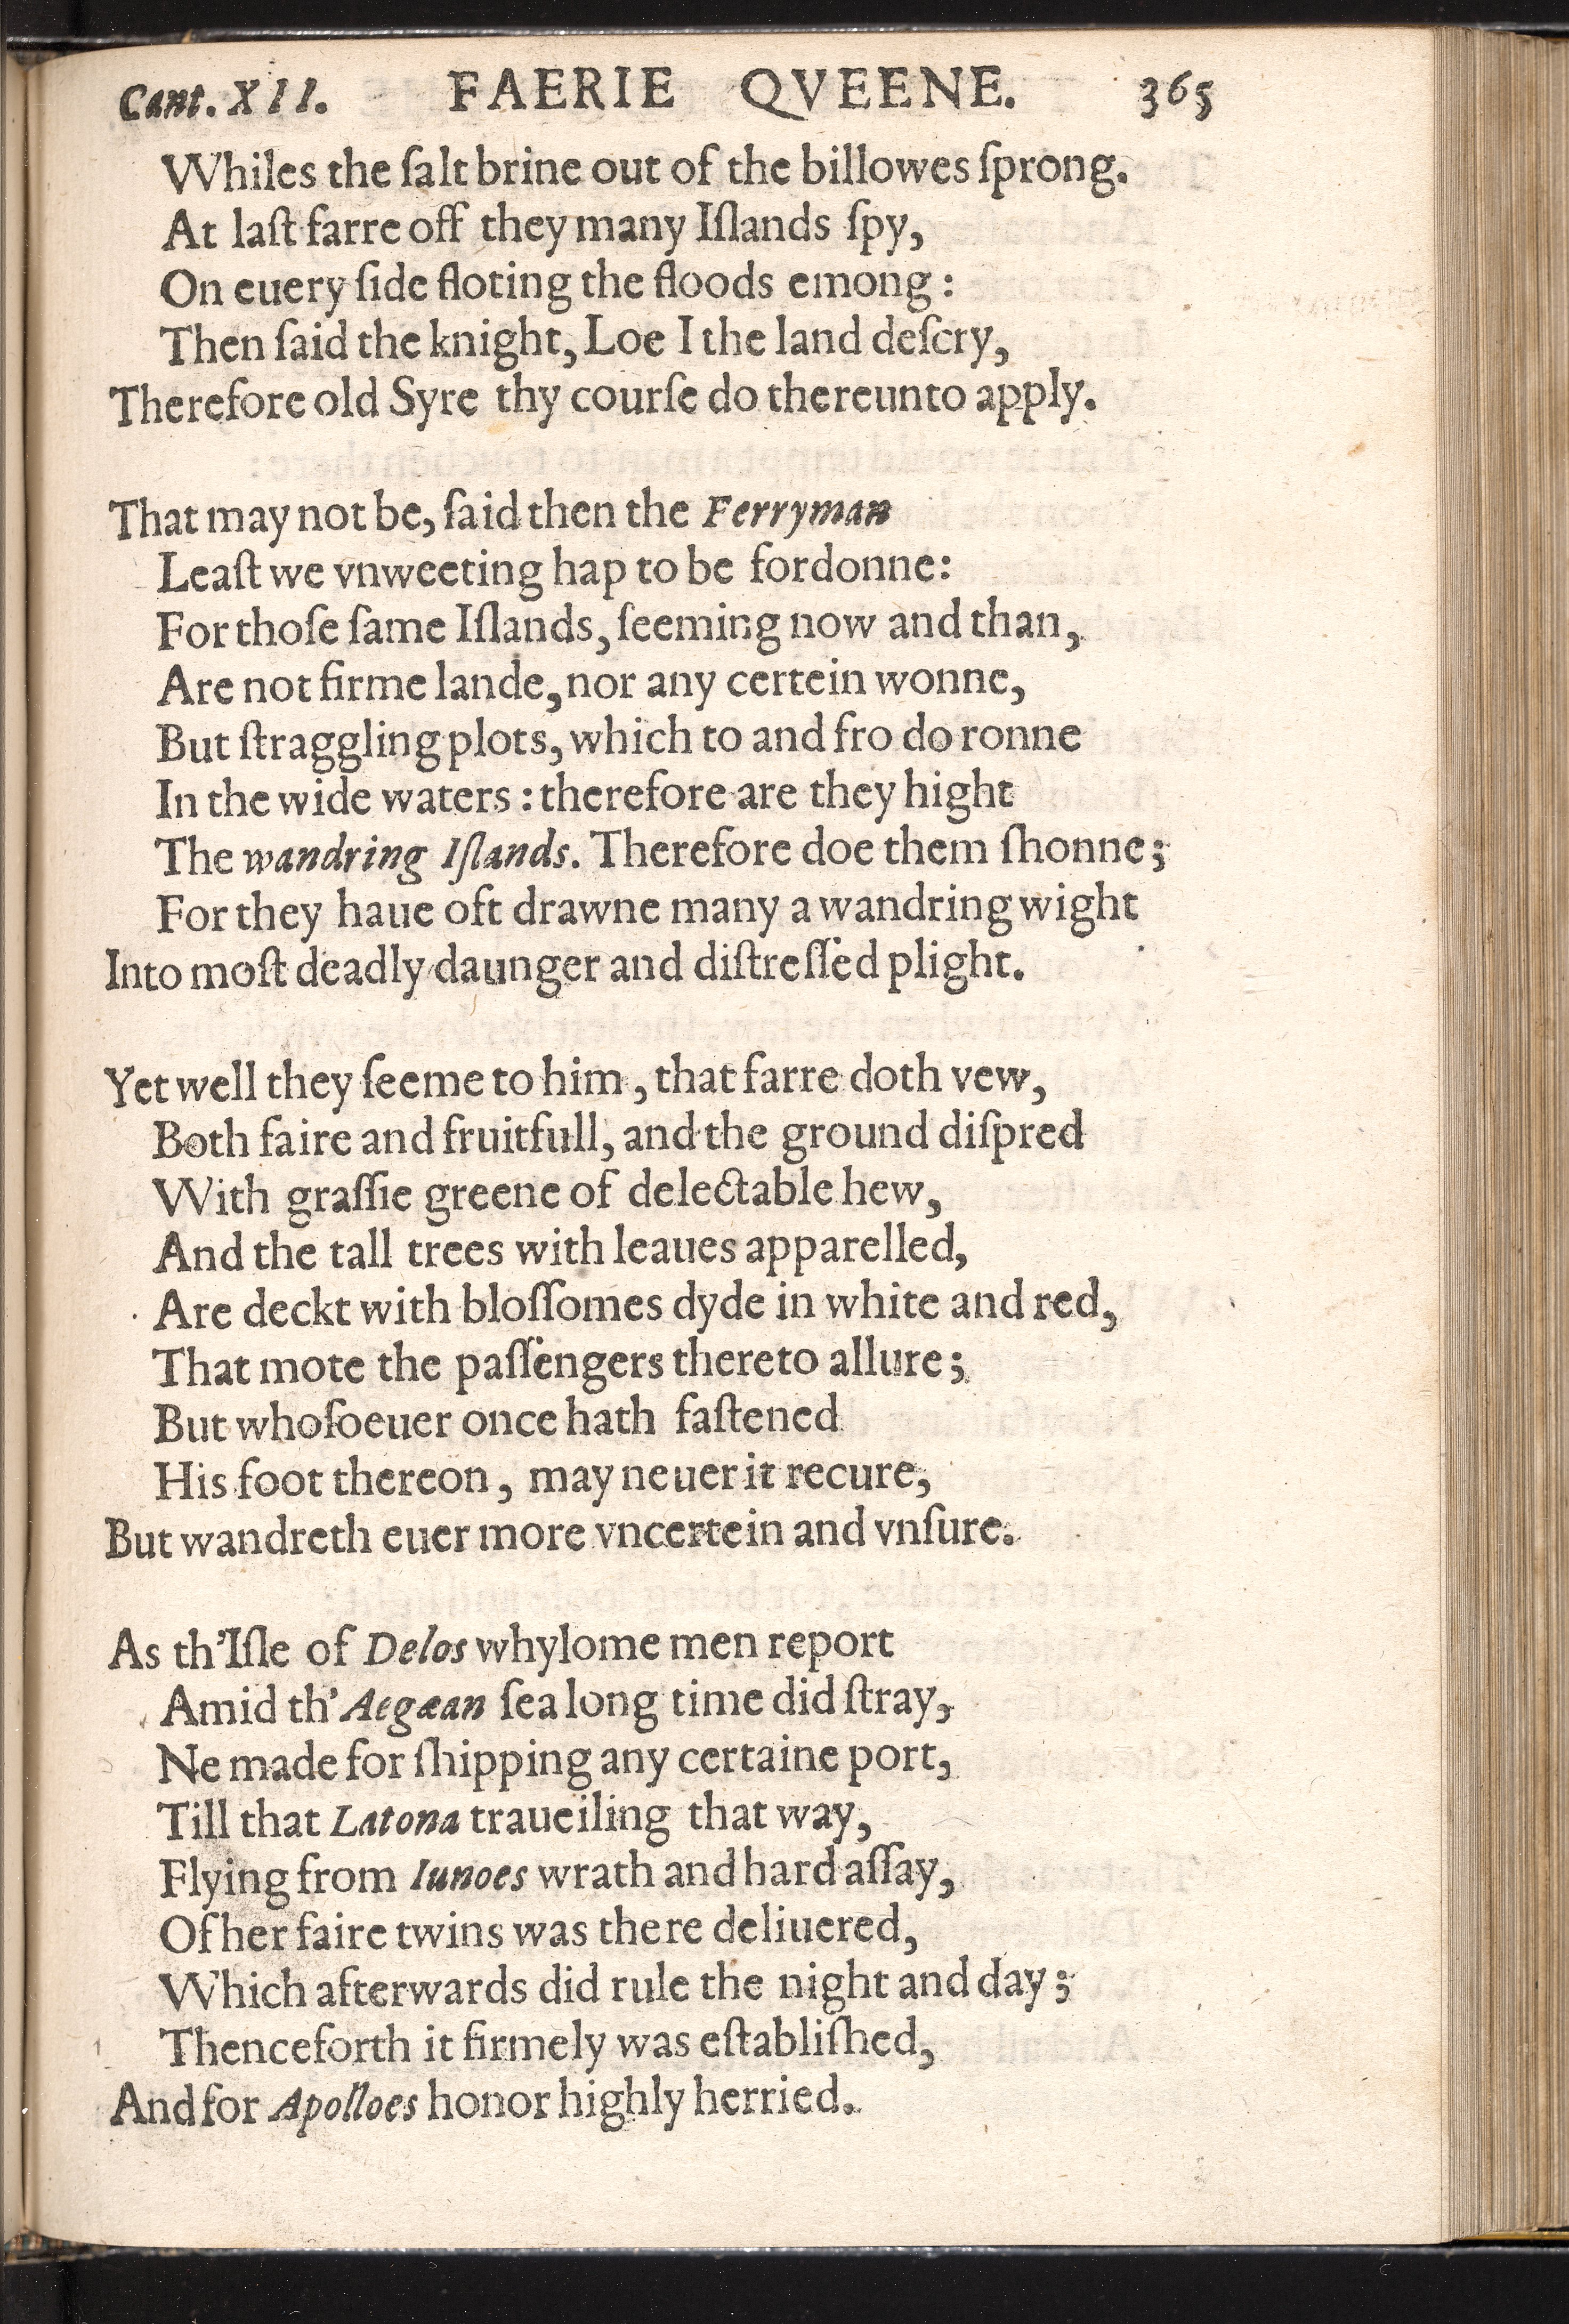 Cant. XII. FAERIE QVEENE. 365
Whiles the ſalt brine out of the billowes ſprong.
At laſt farre off they many Iſlands ſpy,
On euery ſide floting the floods emong:
Then ſaid the knight, Loe I the land deſcry,
Therefore old Syre thy courſe do thereunto apply.
That may not be, ſaid then the Ferryman
Leaſt we vnweeting hap to be fordonne:
For thoſe ſame Iſlands, ſeeming now and than,
Are not firme lande, nor any certein wonne,
But ſtraggling plots, which to and fro do ronne
In the wide waters: therefore are they hight
The wandring Iſlands. Therefore doe them ſhonne;
For they haue oft drawne many a wandring wight
Into moſt deadly daunger and diſtreſſed plight.
Yet well they ſeeme to him, that farre doth vew,
Both faire and fruitfull, and the ground diſpred
With graſſie greene of delectable hew,
And the tall trees with leaues apparelled,
Are deckt with bloſſomes dyde in white and red,
That mote the paſſengers thereto allure;
But whoſoeuer once hath faſtened
His foot thereon, may neuer it recure,
But wandreth euer more vncertein and vnſure.
As th'Iſle of Delos whylome men report
Amid th'Aegæan ſea long time did ſtray,
Ne made for ſhipping any certaine port,
Till that Latona traueiling that way,
Flying from Iunoes wrath and hard aſſay,
Of her faire twins was there deliuered,
Which afterwards did rule the night and day;
Thenceforth it firmely was eſtabliſhed,
And for Apolloes honor highly herried.